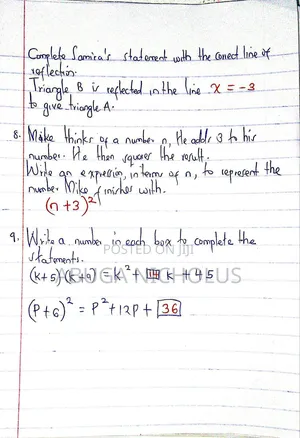 Complete Samira's statement with the correct line of
reflection.
Triangle B is reflected in the line x = -3
to give triangle A.
8. Make thinks of a number n, He adds 3 to his
number. He then squares the result.
Write an expression, in terms of n, to represent the
number Mike finishes with.
(n+3)²
9. Write a number in each box to complete the
statements.
POSTED ON jiji
(k+5)(k+9) = k² + 14 k + 45
ABUGA NICHOLUS
(P+6)² = P² + 12P + 36